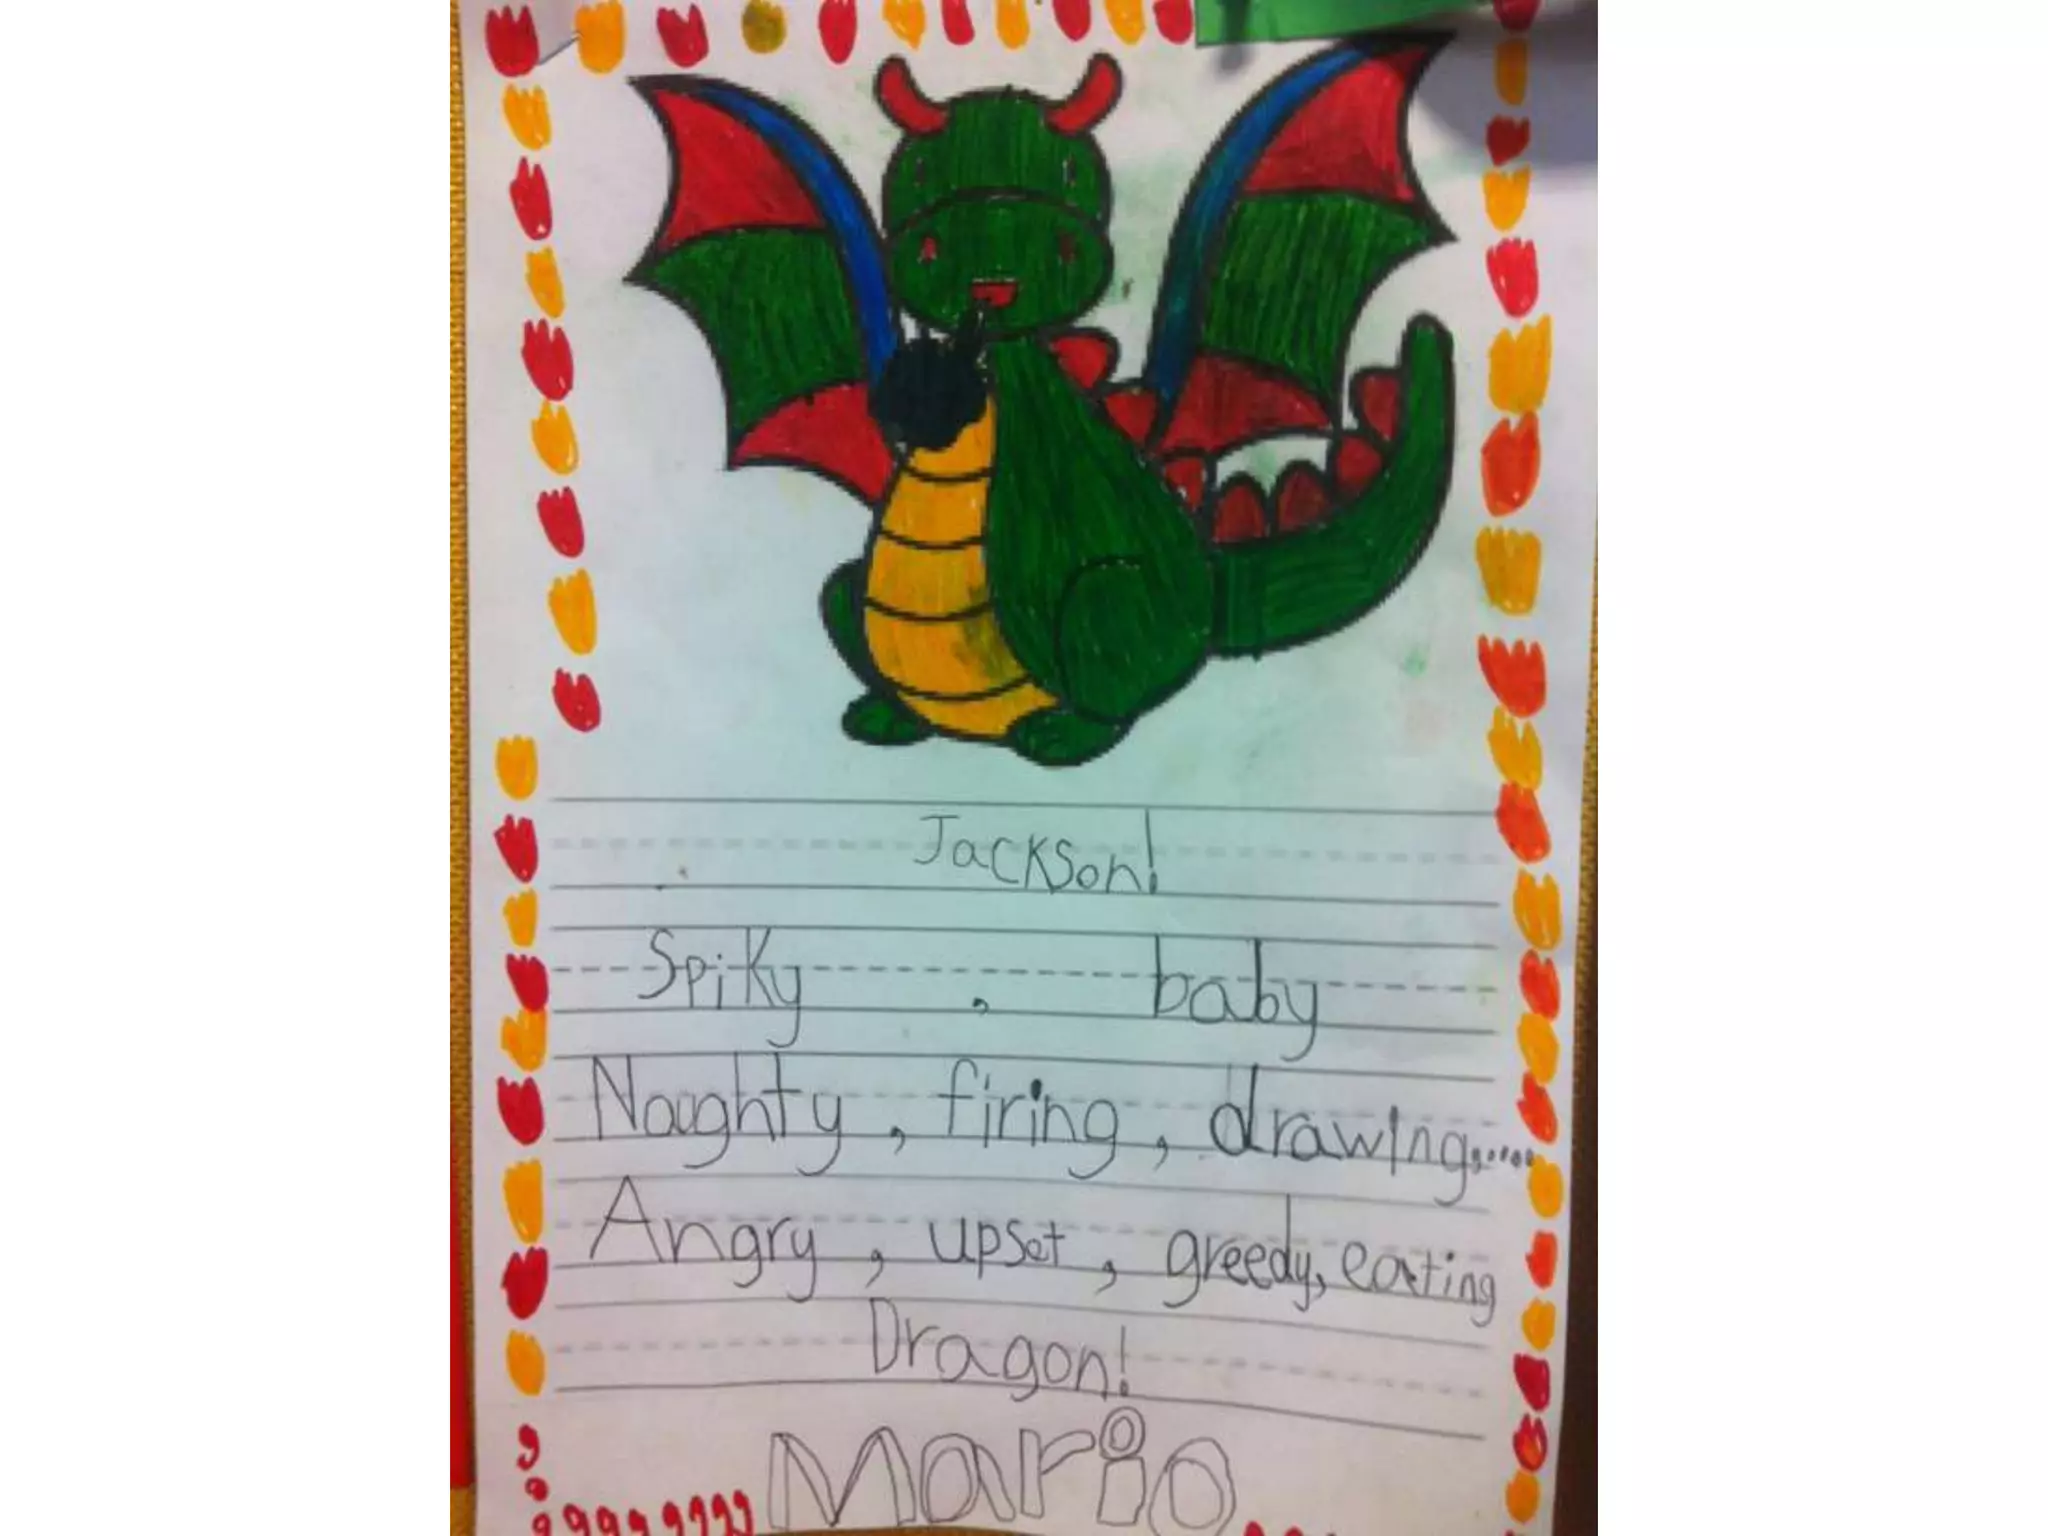 Jackson!
Spiky , baby
Naughty , firing , drawing,.....
Angry , upset , greedy, eating
Dragon!
Mario